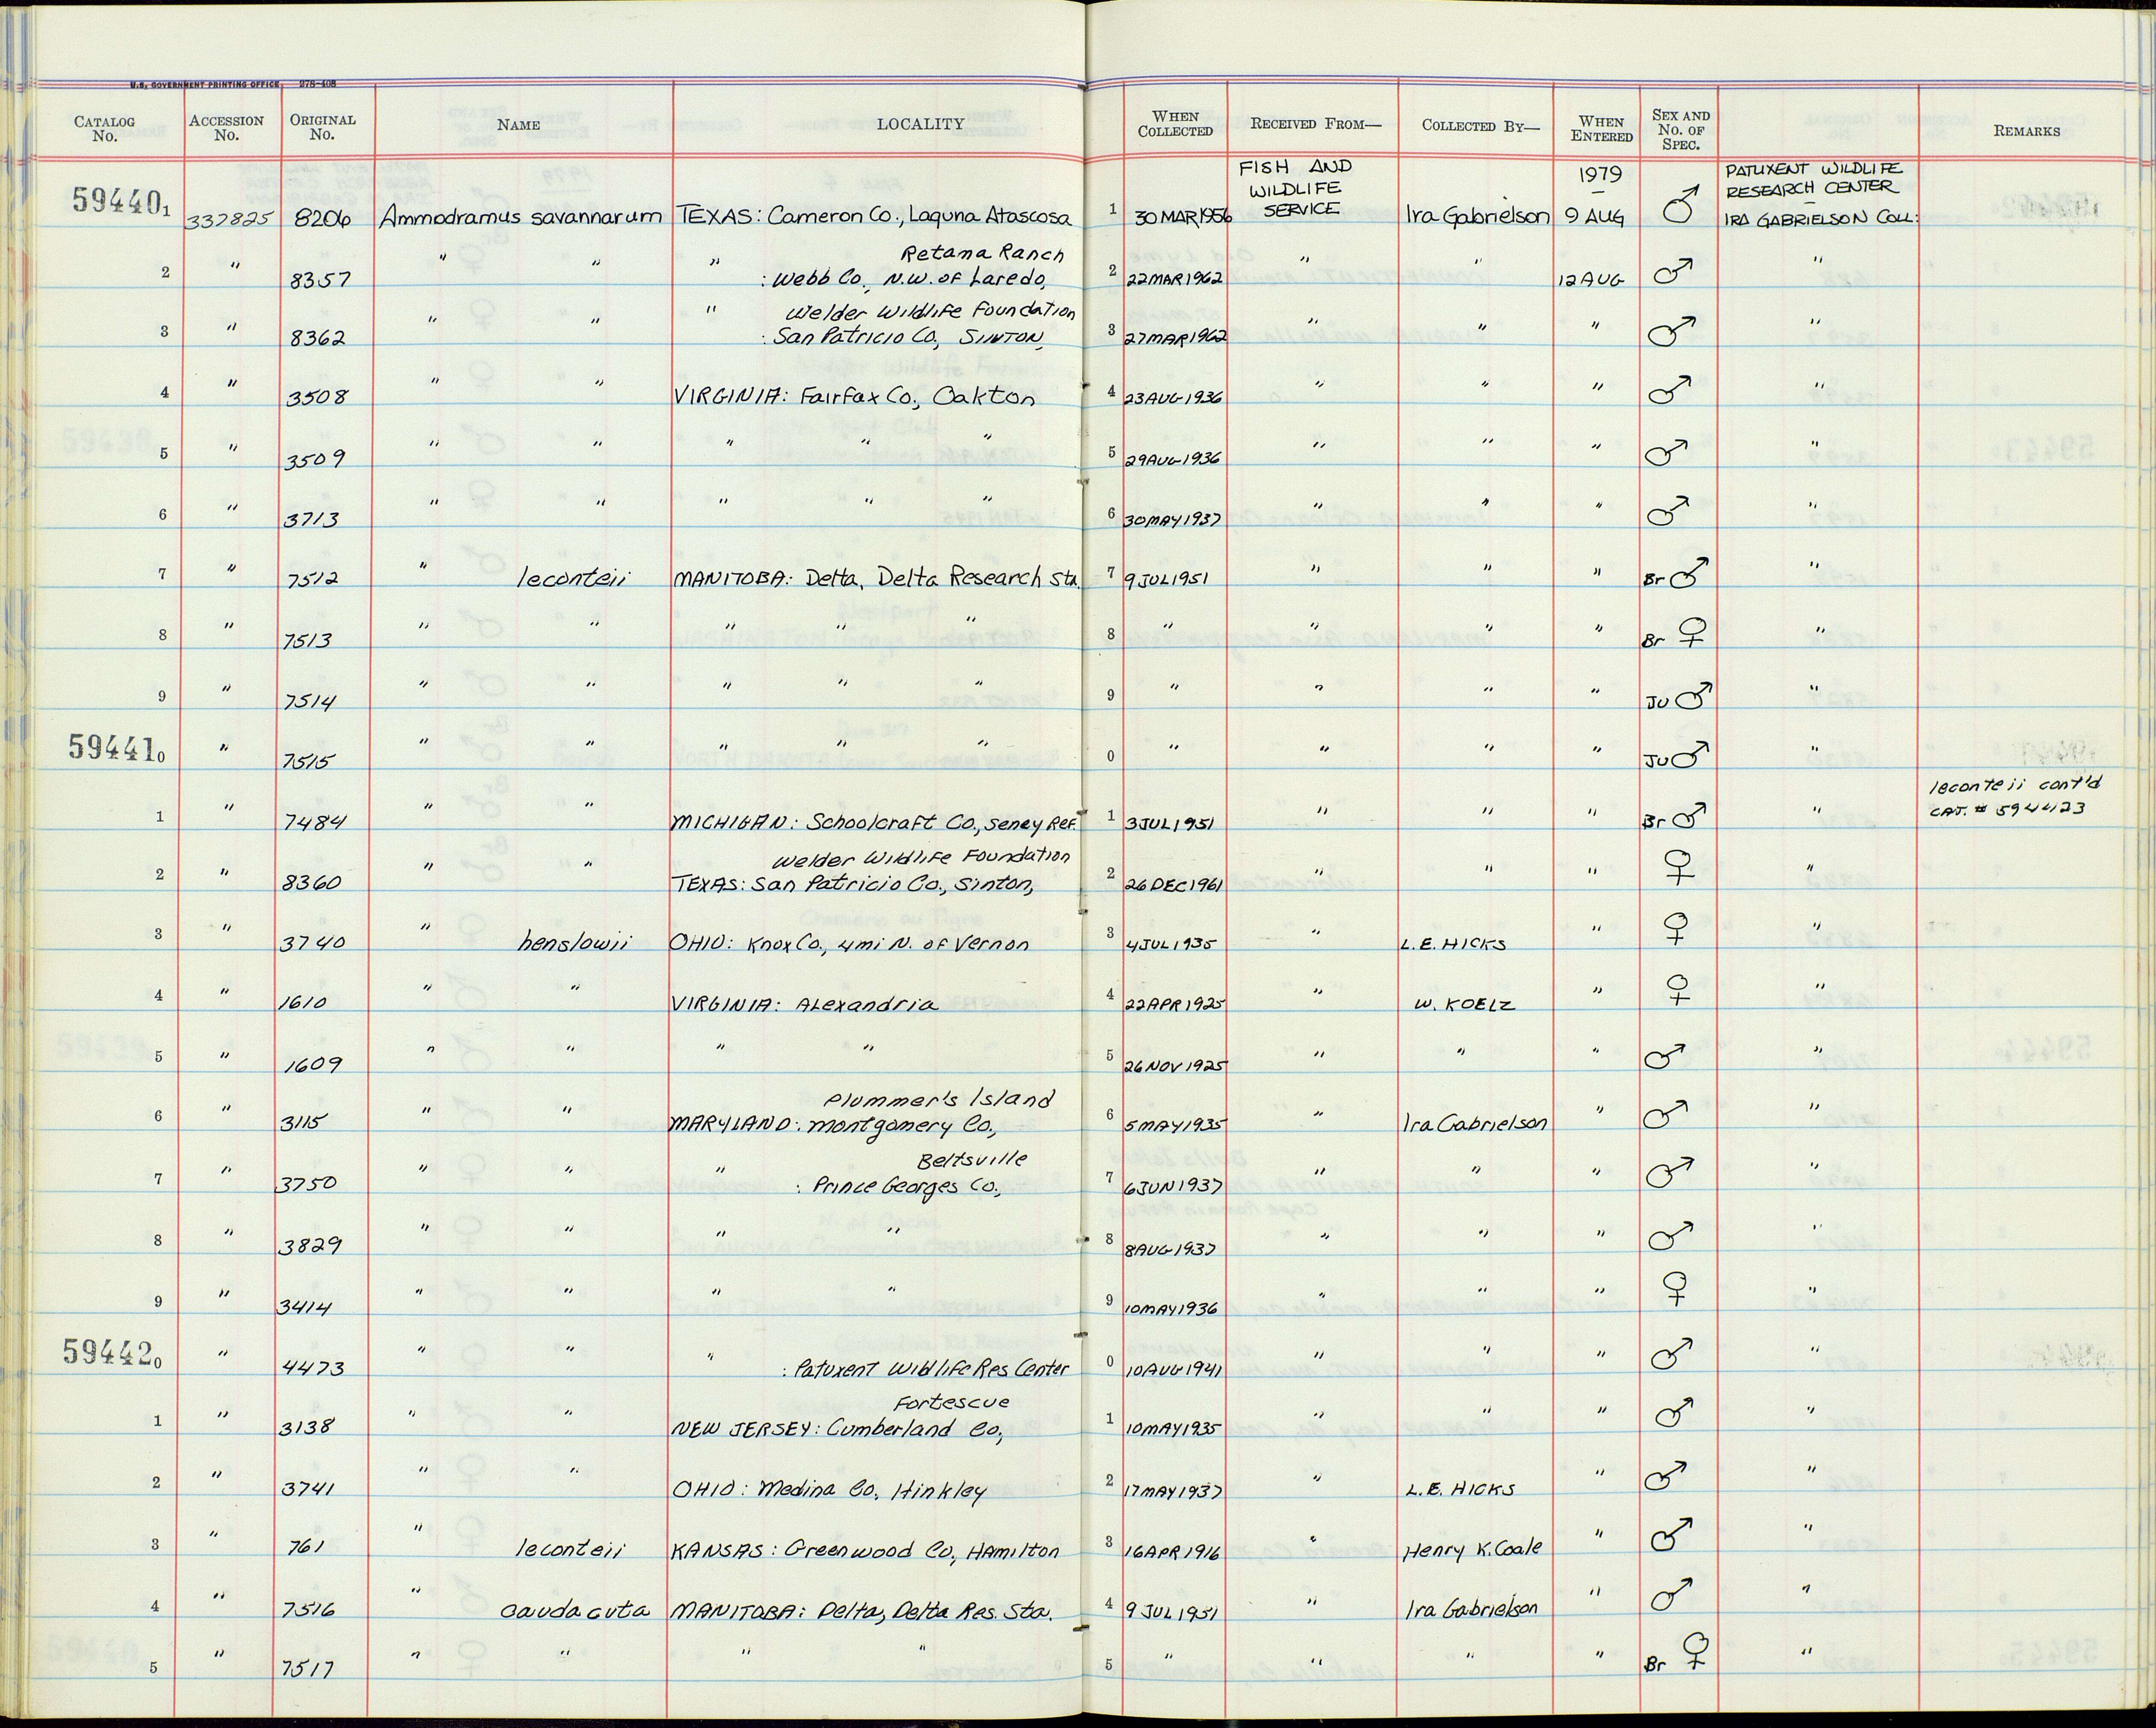 U.S. GOVERNMENT PRINTING OFFICE 278-408
CATALOG No. ACCESSION No. ORIGINAL No. NAME LOCALITY WHEN COLLECTED RECEIVED FROM— COLLECTED BY— WHEN ENTERED SEX AND No. OF SPEC. REMARKS
FISH AND WILDLIFE SERVICE 1979 PATUXENT WILDLIFE RESEARCH CENTER
594401 337825 8206 Ammodramus savannarum TEXAS: Cameron Co., Laguna Atascosa 1 30 MAR 1956 Ira Gabrielson 9 AUG ♂ IRA GABRIELSON COLL.
Retama Ranch
2 " 8357 " " " : Webb Co., N.W. of Laredo, 2 22 MAR 1962 " " 12 AUG ♂ "
Welder Wildlife Foundation
3 " 8362 " " " : San Patricio Co, SINTON, 3 27 MAR 1962 " " " ♂ "
4 " 3508 " " VIRGINIA: Fairfax Co., Oakton 4 23 AUG 1936 " " " ♂ "
5 " 3509 " " " " " 5 29 AUG 1936 " " " ♂ "
6 " 3713 " " " " " 6 30 MAY 1937 " " " ♂ "
7 " 7512 " leconteii MANITOBA: Delta, Delta Research Sta. 7 9 JUL 1951 " " " Br ♂ "
8 " 7513 " " " " " 8 " " " " Br ♀ "
9 " 7514 " " " " " 9 " " " " JU ♂ "
594410 " 7515 " " " " " 0 " " " " JU ♂ "
leconteii cont'd
1 " 7484 " " MICHIGAN: Schoolcraft Co., Seney Ref. 1 3 JUL 1951 " " " Br ♂ " CAT. # 594423
Welder Wildlife Foundation
2 " 8360 " " TEXAS: San Patricio Co., Sinton, 2 26 DEC 1961 " " " ♀ "
3 " 3740 " henslowii OHIO: Knox Co., 4 mi N. of Vernon 3 4 JUL 1935 " L.E. HICKS " ♀ "
4 " 1610 " " VIRGINIA: Alexandria 4 22 APR 1925 " W. KOELZ " ♀ "
5 " 1609 " " " " 5 26 NOV 1925 " " " ♂ "
Plummer's Island
6 " 3115 " " MARYLAND: Montgomery Co., 6 5 MAY 1935 " Ira Gabrielson " ♂ "
Beltsville
7 " 3750 " " " : Prince Georges Co., 7 6 JUN 1937 " " " ♂ "
8 " 3829 " " " " 8 8 AUG 1937 " " " ♂ "
9 " 3414 " " " " 9 10 MAY 1936 " " " ♀ "
594420 " 4473 " " " : Patuxent Wildlife Res Center 0 10 AUG 1941 " " " ♂ "
Fortescue
1 " 3138 " " NEW JERSEY: Cumberland Co, 1 10 MAY 1935 " " " ♂ "
2 " 3741 " " OHIO: Medina Co. Hinkley 2 17 MAY 1937 " L.E. HICKS " ♂ "
3 " 761 " leconteii KANSAS: Greenwood Co., Hamilton 3 16 APR 1916 " Henry K. Coale " ♂ "
4 " 7516 " caudacuta MANITOBA: Delta, Delta Res. Sta. 4 9 JUL 1951 " Ira Gabrielson " ♂ "
5 " 7517 " " " " 5 " " " " Br ♀ "